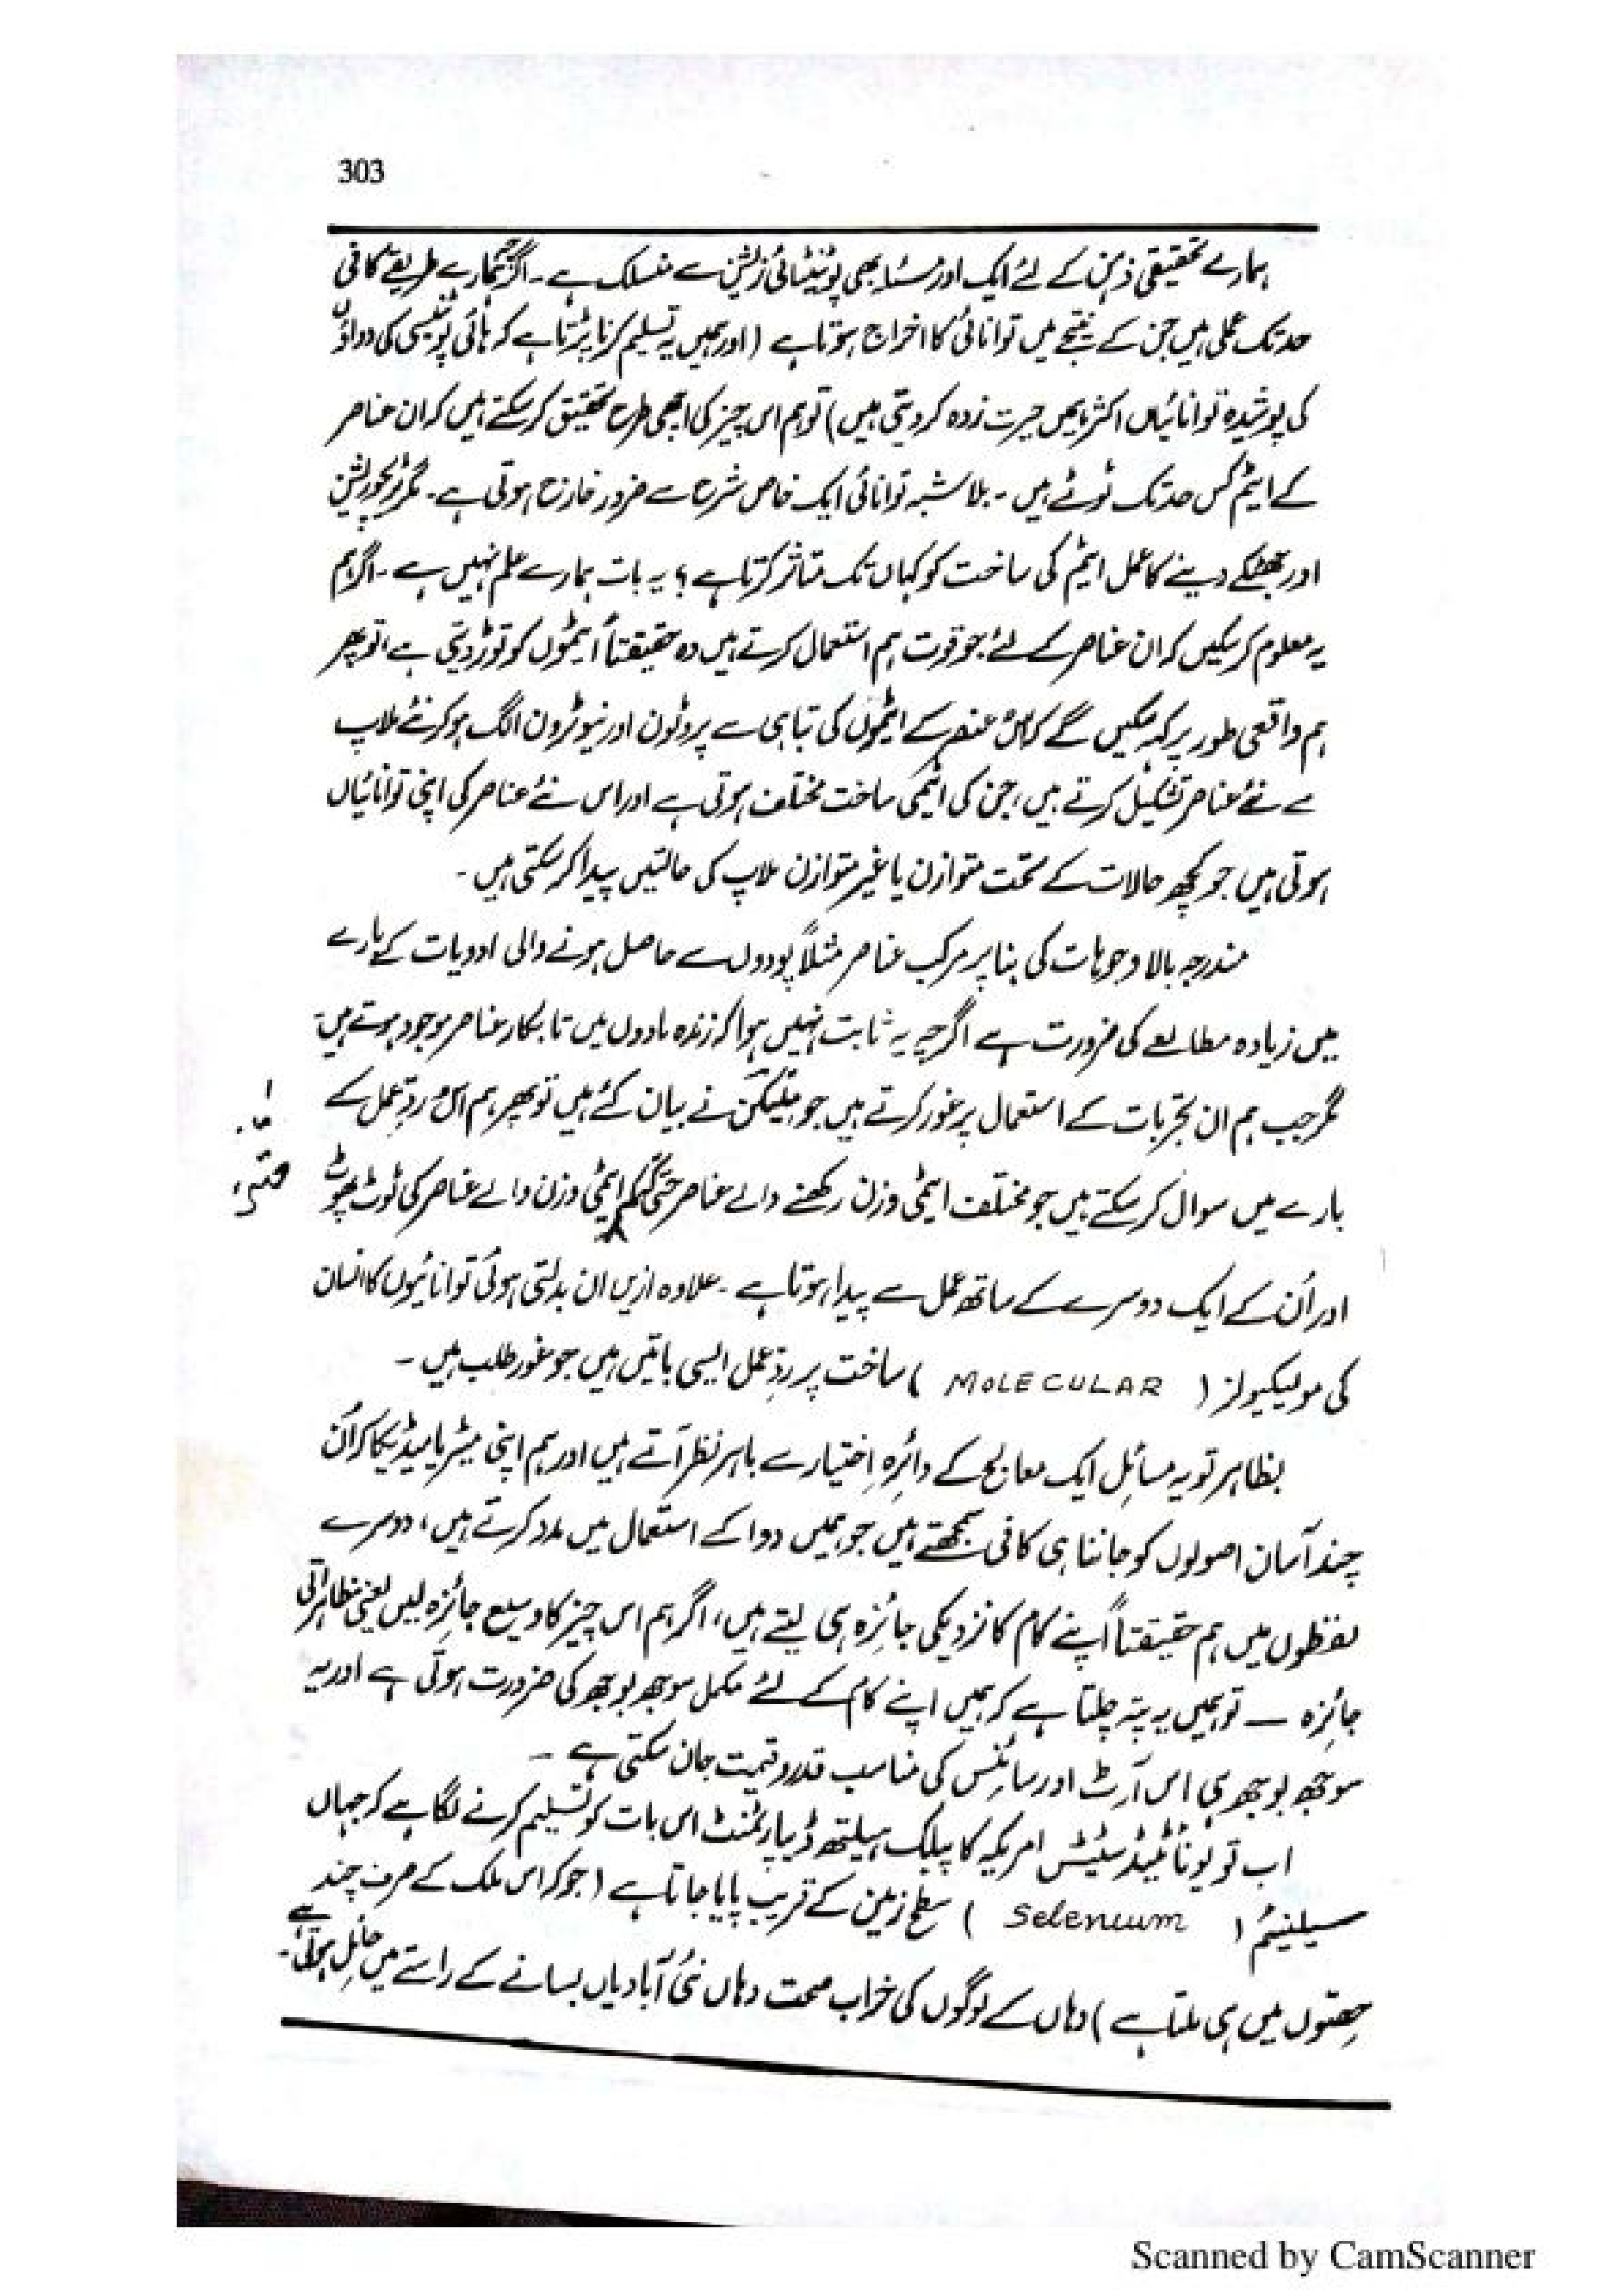 303
ہمارے تحقیقی ذہن کے لئے ایک اور مسئلہ بھی پوٹینٹائزیشن سے منسلک ہے ۔ اگر ہمارے طریقے کافی
حد تک عملی ہیں جن کے نتیجے میں توانائی کا اخراج ہوتا ہے ( اور ہمیں یہ تسلیم کرنا پڑتا ہے کہ ہائی پوٹینسی کی دواؤں
کی پوشیدہ توانائیاں اکثر ہمیں حیرت زدہ کر دیتی ہیں ) تو ہم اس چیز کی اچھی طرح تحقیق کر سکتے ہیں کہ ان عناصر
کے ایٹم کس حد تک ٹوٹے ہیں ۔ بلا شبہ توانائی ایک خاص شرح سے ضرور خارج ہوتی ہے ۔ مگر
اور جھٹکے دینے کا عمل ایٹم کی ساخت کو کہاں تک متاثر کرتا ہے ؟ یہ بات ہمارے علم نہیں ہے ۔ اگر ہم
یہ معلوم کر سکیں کہ ان عناصر کے لئے جو قوت ہم استعمال کرتے ہیں وہ حقیقتاً ایٹموں کو توڑ دیتی ہے ، تو پھر
ہم واقعی طور پر کہہ سکیں گے کہ اس عنصر کے ایٹموں کی تباہی سے پروٹون اور نیوٹرون الگ ہو کر نئے ملاپ
سے نئے عناصر تشکیل کرتے ہیں ، جن کی ایٹمی ساخت مختلف ہوتی ہے اور اس نئے عناصر کی اپنی توانائیاں
ہوتی ہیں جو کچھ حالات کے تحت متوازن یا غیر متوازن ملاپ کی حالتیں پیدا کر سکتی ہیں ۔
مندرجہ بالا وجوہات کی بنا پر مرکب عناصر مثلاً پودوں سے حاصل ہونے والی ادویات کے بارے
میں زیادہ مطالعے کی ضرورت ہے اگرچہ یہ ثابت نہیں ہوا کہ زندہ مادوں میں تابکار عناصر موجود ہوتے ہیں
مگر جب ہم ان تجربات کے استعمال پر غور کرتے ہیں جو ملیکن نے بیان کئے ہیں تو پھر ہم اس ردِّ عمل کے
بارے میں سوال کر سکتے ہیں جو مختلف ایٹمی وزن رکھنے والے عناصر حتیٰ کہ کم ایٹمی وزن والے عناصر کی ٹوٹ پھوٹ
اور اُن کے ایک دوسرے کے ساتھ عمل سے پیدا ہوتا ہے ۔ علاوہ ازیں ان بدلتی ہوئی توانائیوں کا انسان
کی مولیکیولر ( MOLECULAR ) ساخت پر ردِّ عمل ایسی باتیں ہیں جو غور طلب ہیں ۔
بظاہر تو یہ مسائل ایک معالج کے دائرہِ اختیار سے باہر نظر آتے ہیں اور ہم اپنی میٹریا میڈیکا کے اُن
چند آسان اصولوں کو جاننا ہی کافی سمجھتے ہیں جو ہمیں دوا کے استعمال میں مدد کرتے ہیں ، دوسرے
لفظوں میں ہم حقیقتاً اپنے کام کا نزدیکی جائزہ ہی لیتے ہیں ، اگر ہم اس چیز کا وسیع جائزہ لیں یعنی
جائزہ ــ تو ہمیں یہ پتہ چلتا ہے کہ ہمیں اپنے کام کے لئے مکمل سوجھ بوجھ کی ضرورت ہوتی ہے اور یہ
سوجھ بوجھ ہی اس آرٹ اور سائنس کی مناسب قدر و قیمت جان سکتی ہے ۔
اب تو یونائیٹڈ سٹیٹس امریکہ کا پبلک ہیلتھ ڈیپارٹمنٹ اس بات کو تسلیم کرنے لگا ہے کہ جہاں
سیلینیئم ( Selenium ) سطح زمین کے قریب پایا جاتا ہے ( جو کہ اس ملک کے صرف چند
حصّوں میں ہی ملتا ہے ) وہاں کے لوگوں کی خراب صحت وہاں نئی آبادیاں بسانے کے راستے میں حائل ہوتی ہے ۔
Scanned by CamScanner